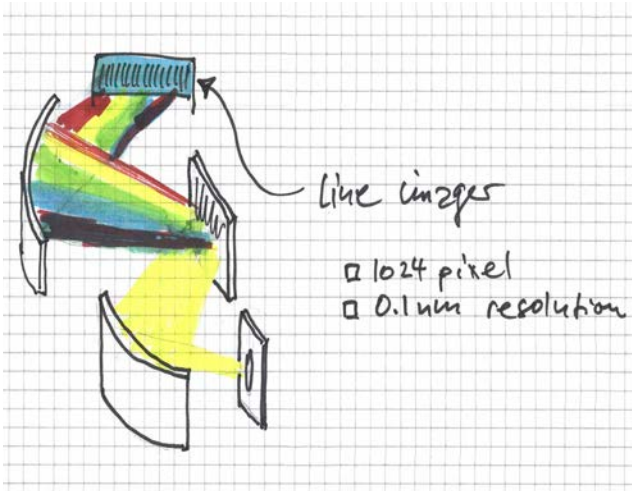 line imager
□ 1024 pixel
□ 0.1nm resolution